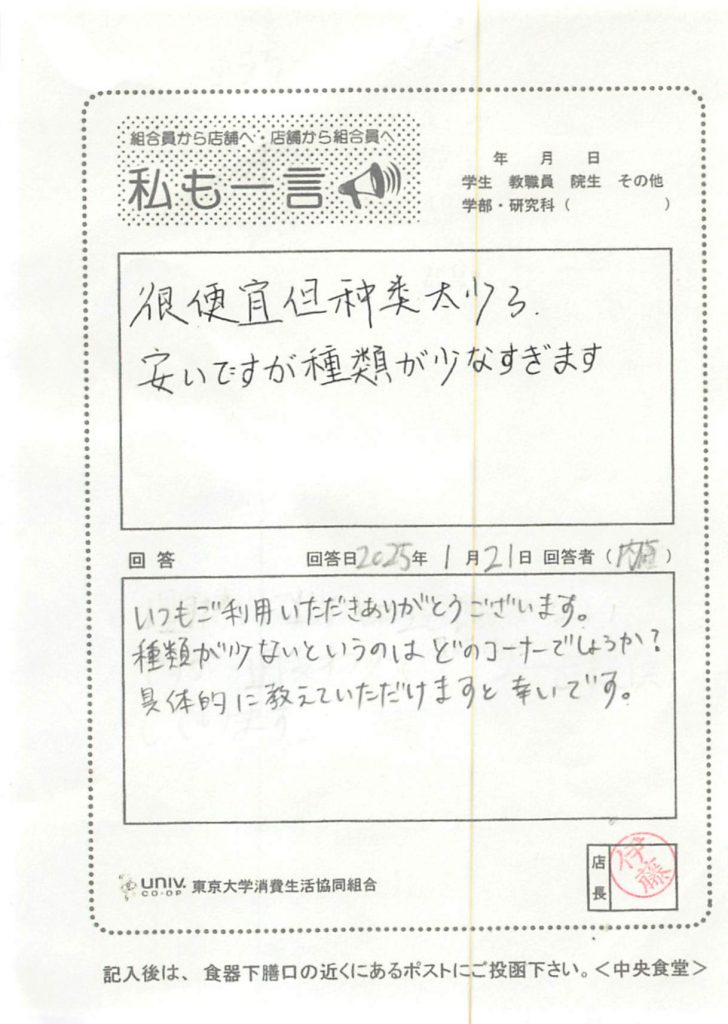 組合員から店舗へ・店舗から組合員へ
私も一言
年 月 日
学生 教職員 院生 その他
学部・研究科( )
很便宜但种类太少了.
安いですが種類が少なすぎます
回答 回答日2025年 1月21日 回答者( )
いつもご利用いただきありがとうございます。
種類が少ないというのはどのコーナーでしょうか?
具体的に教えていただけますと幸いです。
店長
伊藤
UNIV. CO-OP 東京大学消費生活協同組合
記入後は、食器下膳口の近くにあるポストにご投函下さい。<中央食堂>